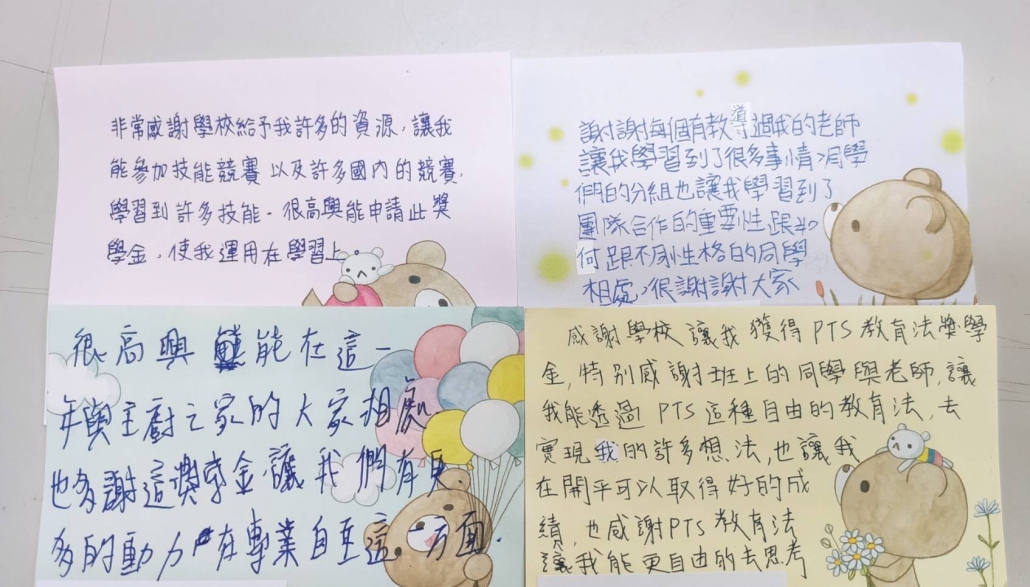 非常感謝學校給予我許多的資源,讓我
能參加技能競賽以及許多國內的競賽,
學習到許多技能。很高興能申請此獎
學金,使我運用在學習上。
謝謝每個有教導過我的老師
讓我學習到了很多事情,同學
們的分組也讓我學習到了
團隊合作的重要性跟如
何跟不同性格的同學
相處,很謝謝大家
很高興能在這一
年與主廚之家的大家相處
也多謝這獎學金讓我們有更
多的動力在專業自主這方面.
感謝學校讓我獲得PTS教育法獎學
金,特別感謝班上的同學與老師,讓
我能透過PTS這種自由的教育法,去
實現我的許多想法,也讓我
在開平可以取得好的成
績,也感謝PTS教育法
讓我能更自由的去思考